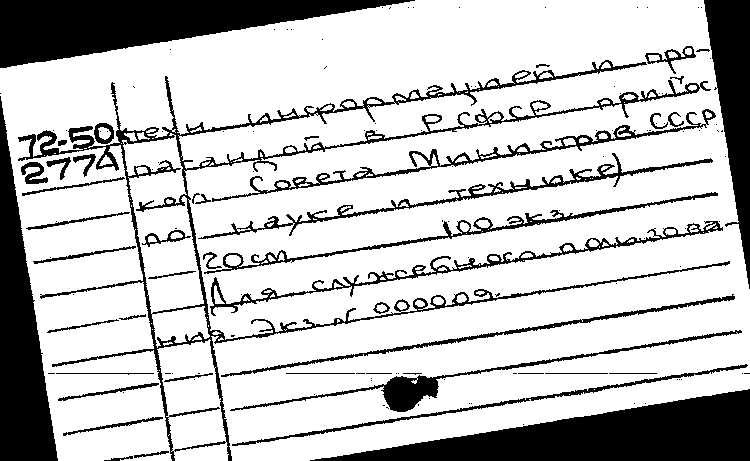 72-50 техн. информацией и про-
277А пагандой в РСФСР при Гос
ком. Совета Министров СССР
по науке и технике)
20 см 100 экз.
Для служебного пользова-
ния. Экз. № 000009.